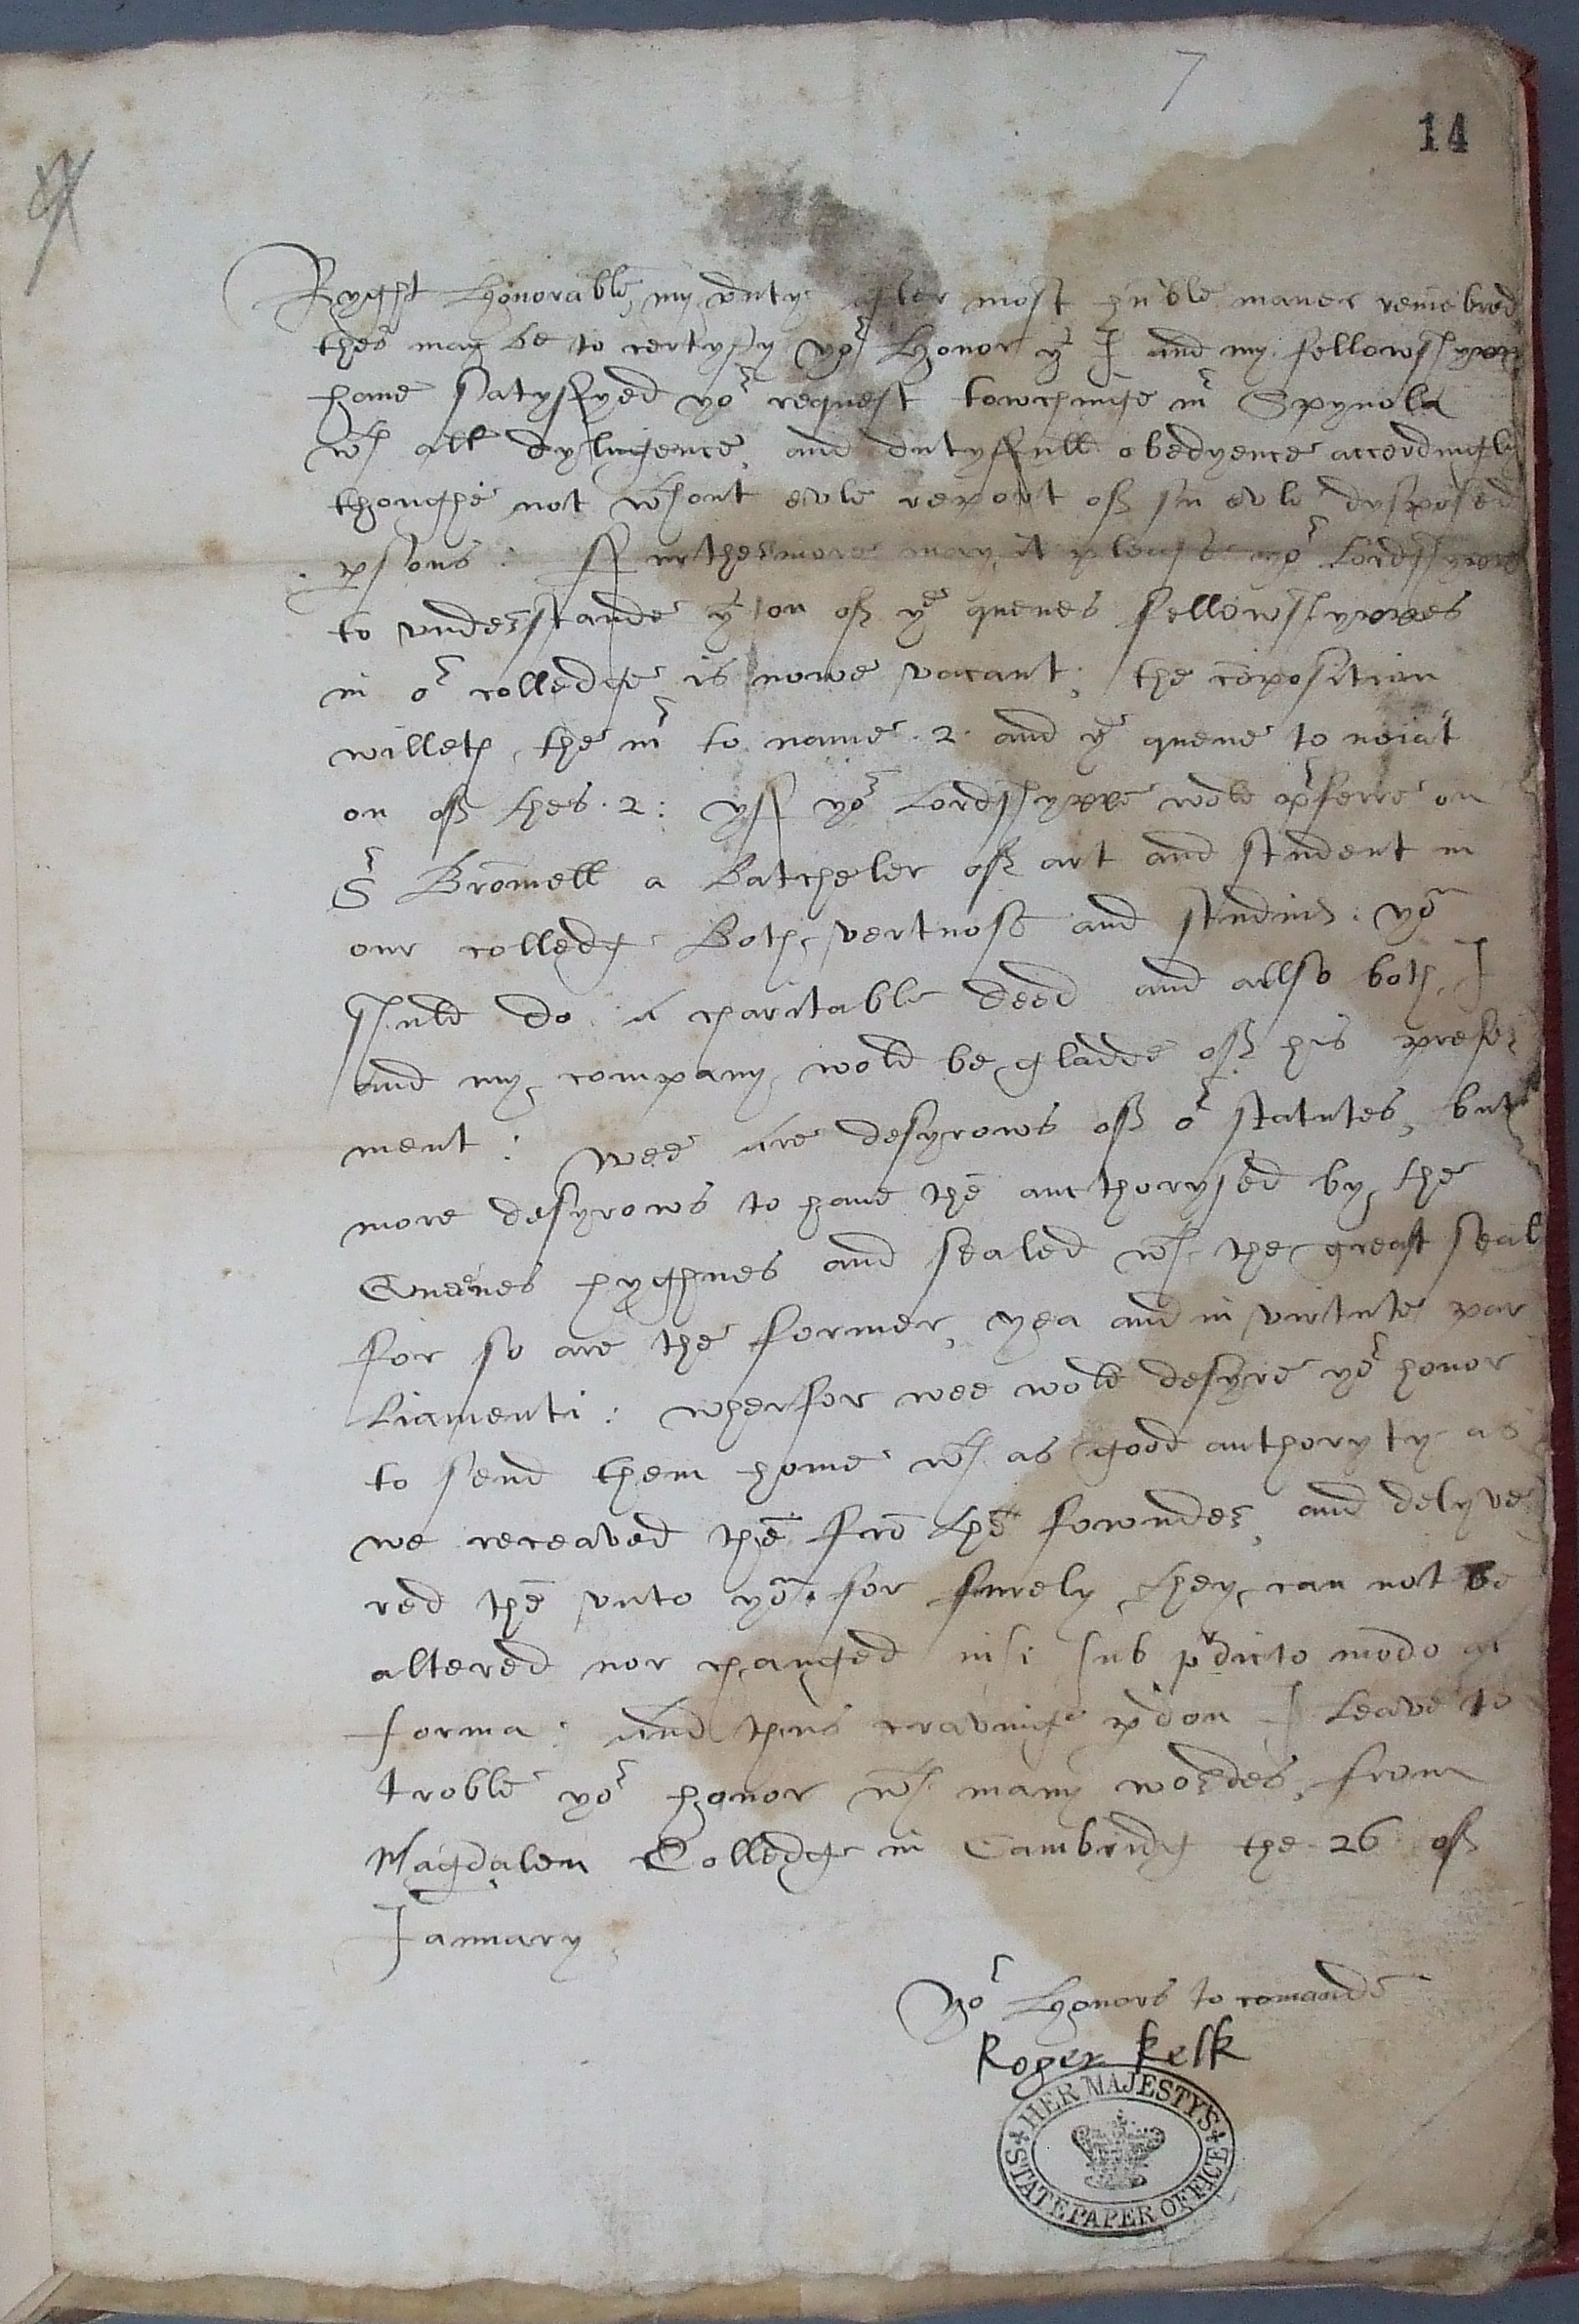 7
14
Ryght Honorable, my duty after most hūble maner remēbred
thes may be to certyfy yor Honor yt I and my fellowshyppe
haue satysfyed yor request towchinge mr Spynola
wth all dyligence, and dutyfull obedyence accordingly
thoughe not wthout evle report off sū evle dysposed
psons: Furthermore may it please yor Lordshyppe
to understande yt on off ye quenes fellowshyppes
in or colledge is nowe vacant, the cōposition
willeth the mr to name .2. and ye quene to noīat
on off thes .2: yff yor Lordshyppe wold prferre on
Sr Bromell a Batcheler off art and student in
our colledg Both vertuose and studius: yow
shuld do a charitable deed and allso both I
and my company wold be gladde off his prefer
ment: Wee are desyrows off or statutes, but
more desyrows to haue thē aucthorysed by the
Queenes hyghnes and sealed wth the great seal
for so are the former, yea and in virtute par
liamenti: wherfor wee wold desyre yor honor
to send them home wth as good authoryty as
we receaved thē frō the fownder, and delyve
red thē vnto yow for surely they can not be
altered nor changed nisi sub prdicto modo et
forma: And thus cravinge pdon I leave to
troble yor honor wth many wordes, from
Magdalen Colledge in Cambridg the .26 off
January
Yor Honors to comaunde
Roger Kelk
HER MAJESTY'S
STATE PAPER OFFICE